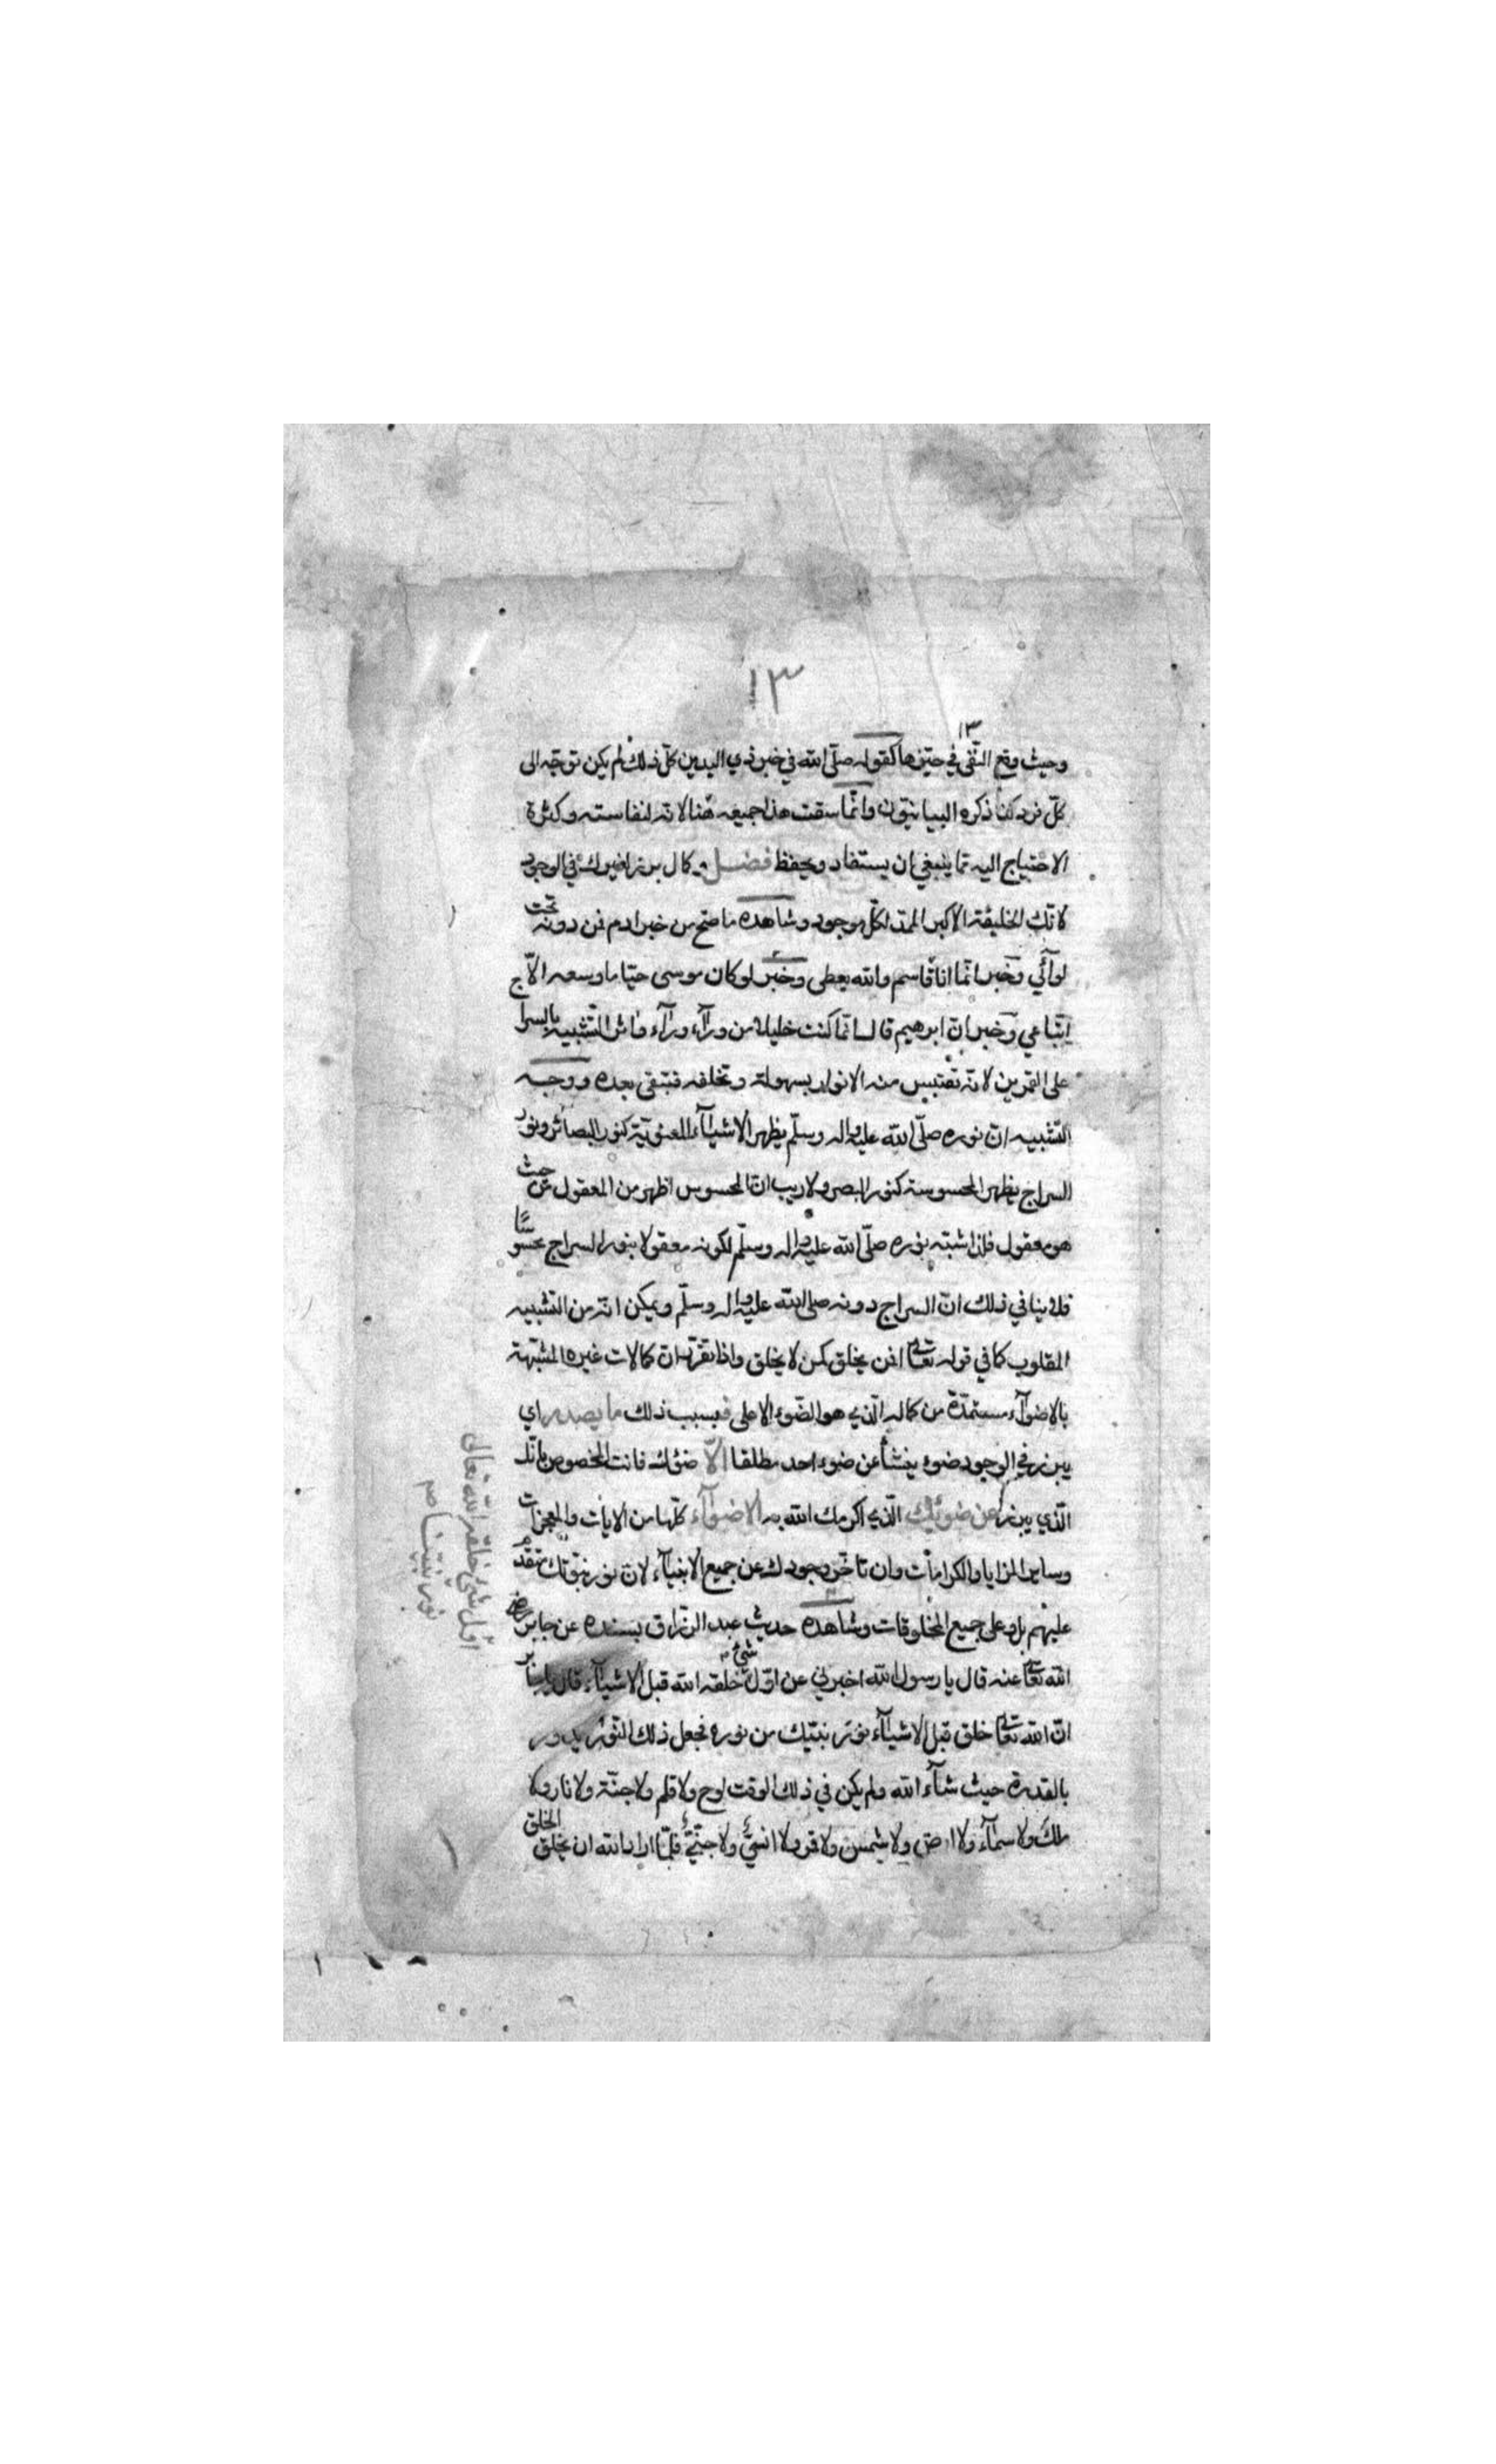 ١٣
١٣
وحيث وقع النّفى في حيّزها كقوله صلّى الله في خبر ذي اليدين كلّ ذلك لم يكن توجّه الى
كلّ فرد كذا ذكره البيانيّون وانّما سقت هذا جميعه هنا لانه لنفاسته وكثرة
الاحتياج اليه مما ينبغي ان يستفاد ويحفظ فضل وكمال برز لغيرك في الوجود
لانّك الخليفة الاكبر الممد لكلّ موجود وشاهده ما صحّ من خبر ادم فمن دونه تحت
لوآئي وخبر انّما انا قاسم والله يعطى وخبر لو كان موسى حيّا ما وسعه الّا
اتّباعي وخبر انّ ابرهيم قال انّما كنت خليلا من ورآء ورآء واثر التّشبيه بالسراج
على القمرين لانّه تقتبس منه الانوار بسهولة وتخلفه فتبقى بعده ووجه
التّشبيه انّ نوره صلّى الله عليه واله وسلّم يظهر الاشيآء المعنويّة كنور البصائر ونور
السراج يظهر المحسوسة كنور البصر ولا ريب انّ المحسوس اظهر من المعقول من حيث
هو معقول فلذا شبّه نوره صلّى الله عليه واله وسلّم لكونه معقولا بنور السراج محسوسًا
فلا ينافي ذلك انّ السراج دونه صلى الله عليه واله وسلّم ويمكن انّه من التّشبيه
المقلوب كما في قوله تعالى افمن يخلق كمن لا يخلق واذا تقرّر انّ كمالات غيره المشبّهة
بالاضوآء مستمدّة من كماله الّذي هو الضّوء الاعلى فبسبب ذلك ما يصدر اي
يبرز في الوجود ضوء ينشأ عن ضوء احد مطلقا الّا ضوئك فانت المخصوص بانّك
الّذي يبرز عن ضوئك الّذي اكرمك الله به الاضوآء كلّها من الايات والمعجزات
وساير المزايا والكرامات وان تاخّر وجودك عن جميع الانبيآء لانّ نور نبوّتك متقدّم
عليهم بل وعلى جميع المخلوقات وشاهده حديث عبد الرّزاق بسنده عن جابر رضي
الله تعالى عنه قال يا رسول الله اخبرني عن اوّل شيء خلقه الله قبل الاشيآء قال يا جابر
انّ الله تعالى خلق قبل الاشيآء نور نبيّك من نوره فجعل ذلك النّور يدور
بالقدرة حيث شآء الله ولم يكن في ذلك الوقت لوح ولا قلم ولا جنّة ولا نار ولا
ملك ولا سمآء ولا ارض ولا شمس ولا قمر ولا انسيّ ولا جنّيّ فلمّا اراد الله ان يخلق الخلق
اوّل شئ خلقه الله تعالى
نور نبيّنا صم